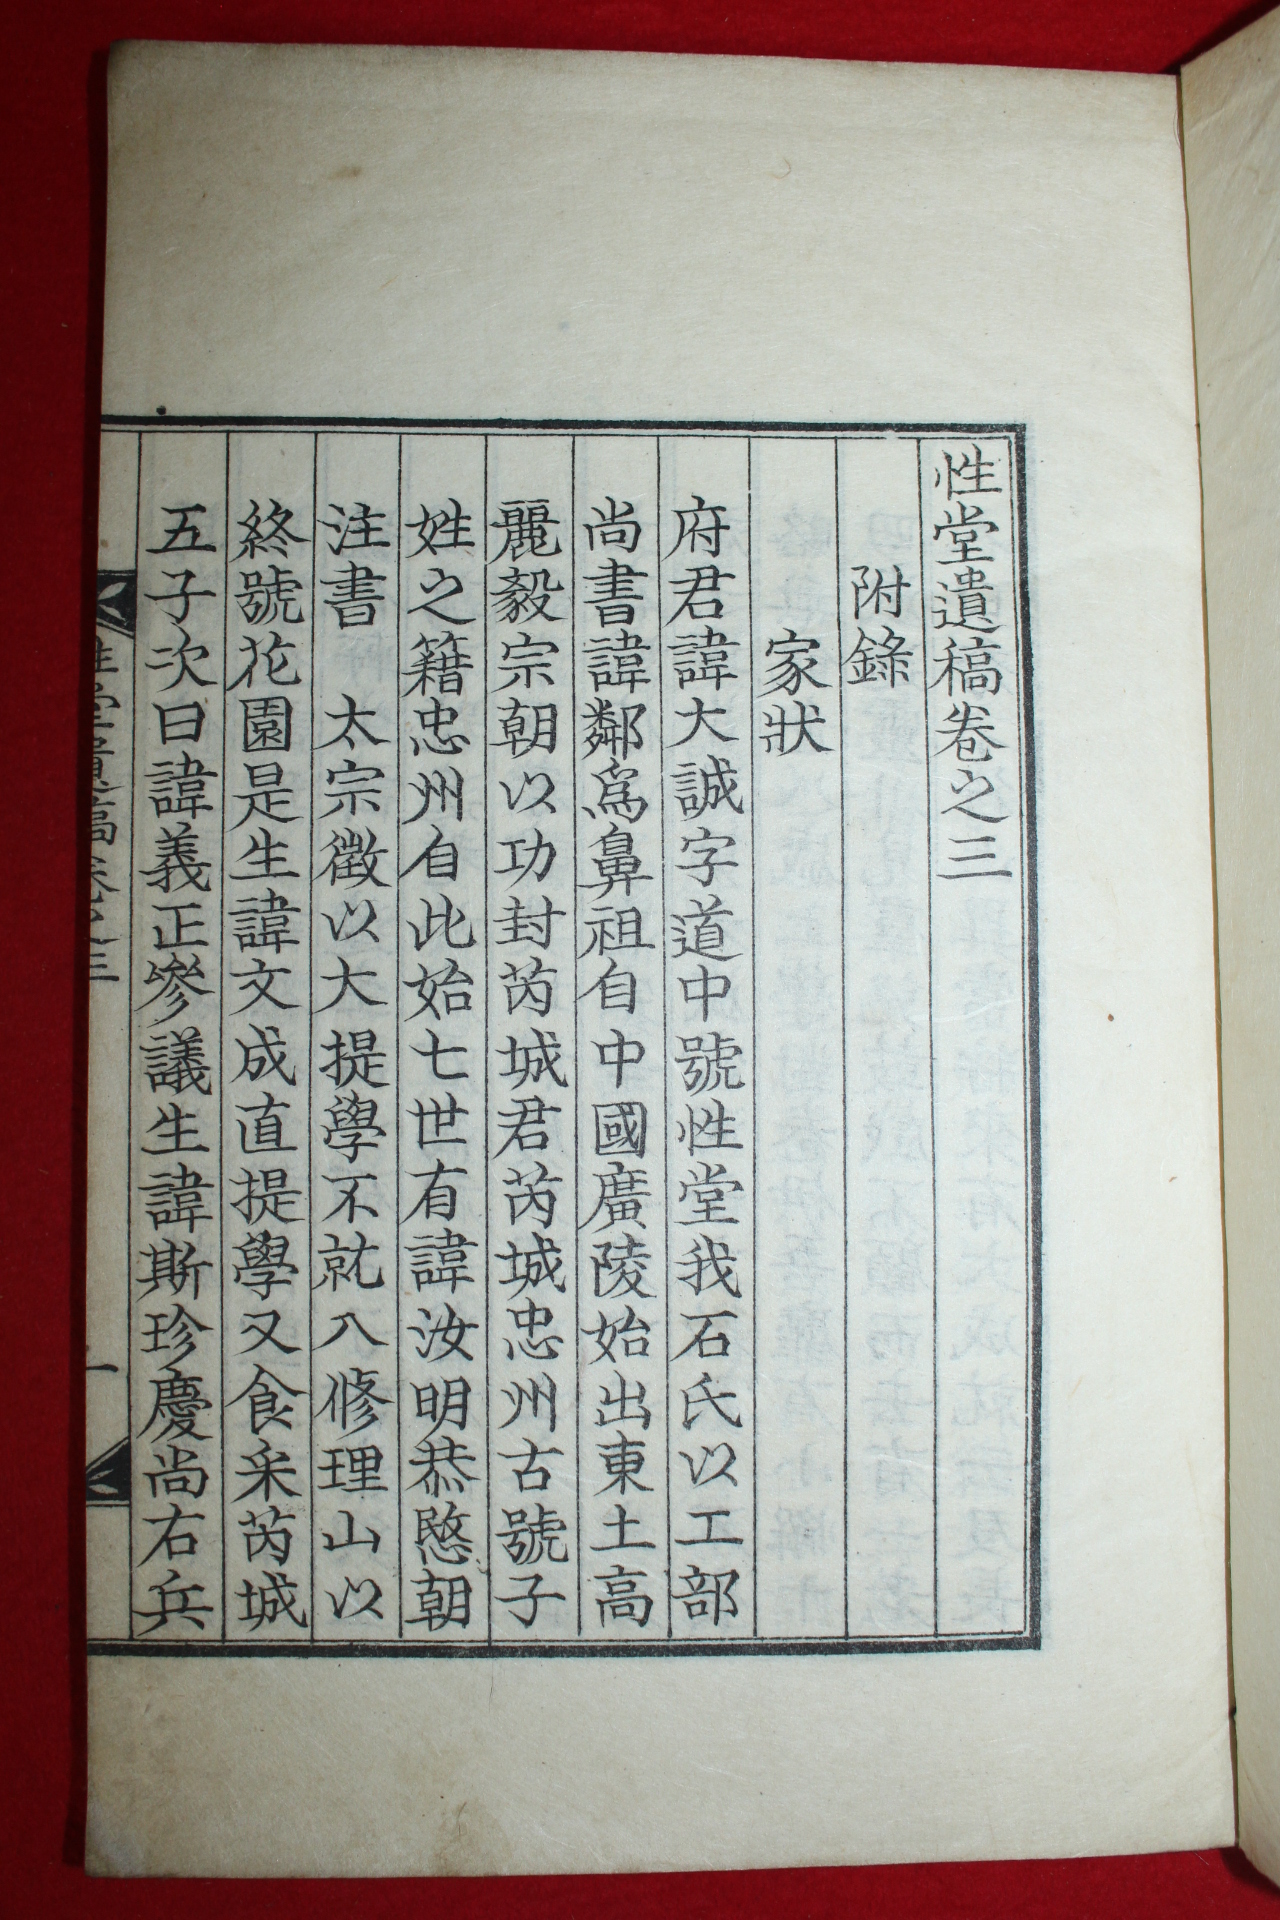 性堂遺稿卷之三
附錄
家狀
府君諱大誠字道中號性堂我石氏以工部
尚書諱鄰爲鼻祖自中國廣陵始出東土高
麗毅宗朝以功封芮城君芮城忠州古號子
姓之籍忠州自此始七世有諱汝明恭愍朝
注書　太宗徵以大提學不就入修理山以
終號花園是生諱文成直提學又食采芮城
五子次曰諱義正參議生諱斯珍慶尚右兵
性堂遺稿卷之三
一